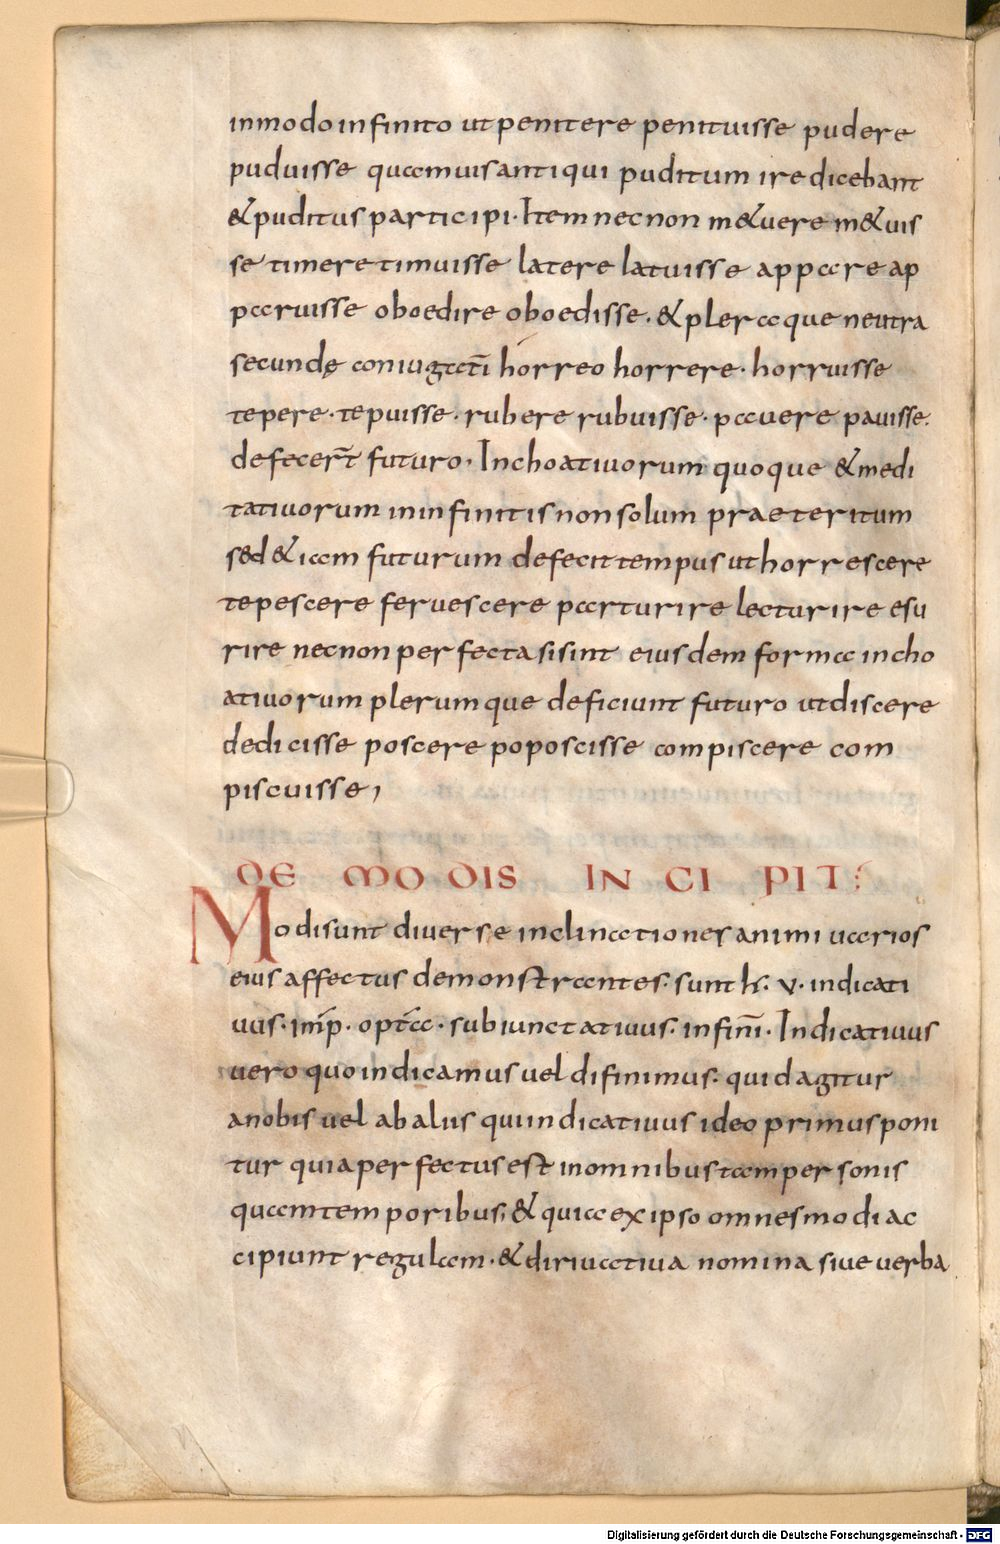 inmodo infinito ut penitere penituisse pudere
puduisse quamuis antiqui puditum ire dicebant
& puditus participi. Item necnon m&uere m&uis
se timere timuisse latere latuisse appare ap
paruisse oboedire oboedisse. & pleraque neutra
secundę coniugatī horreo horrere. horruisse
tepere. tepuisse. rubere rubuisse. pauere pauisse.
defecer̄t futuro. Inchoatiuorum quoque & medi
tatiuorum in infinitis non solum praeteritum
sed & iam futurum defecit tempus ut horrescere
tepescere feruescere parturire lecturire esu
rire necnon perfecta si sint eiusdem forma incho
atiuorum plerumque deficiunt futuro ut discere
dedicisse poscere poposcisse compiscere com
piscuisse,
DE MODIS INCIPIT:
Modi sunt diuerse inclinationes animi uarios
eius affectus demonstrantes. sunt h. v. indicati
uus. imp̄. optā. subiunctatiuus. infinī. Indicatiuus
uero quo indicamus uel difinimus. quid agitur
a nobis uel ab aliis qui indicatiuus ideo primus poni
tur quia perfectus est in omnibus tam personis
quam temporibus, & quia ex ipso omnes modi ac
cipiunt regulam. & diriuatiua nomina siue uerba
Digitalisierung gefördert durch die Deutsche Forschungsgemeinschaft - DFG